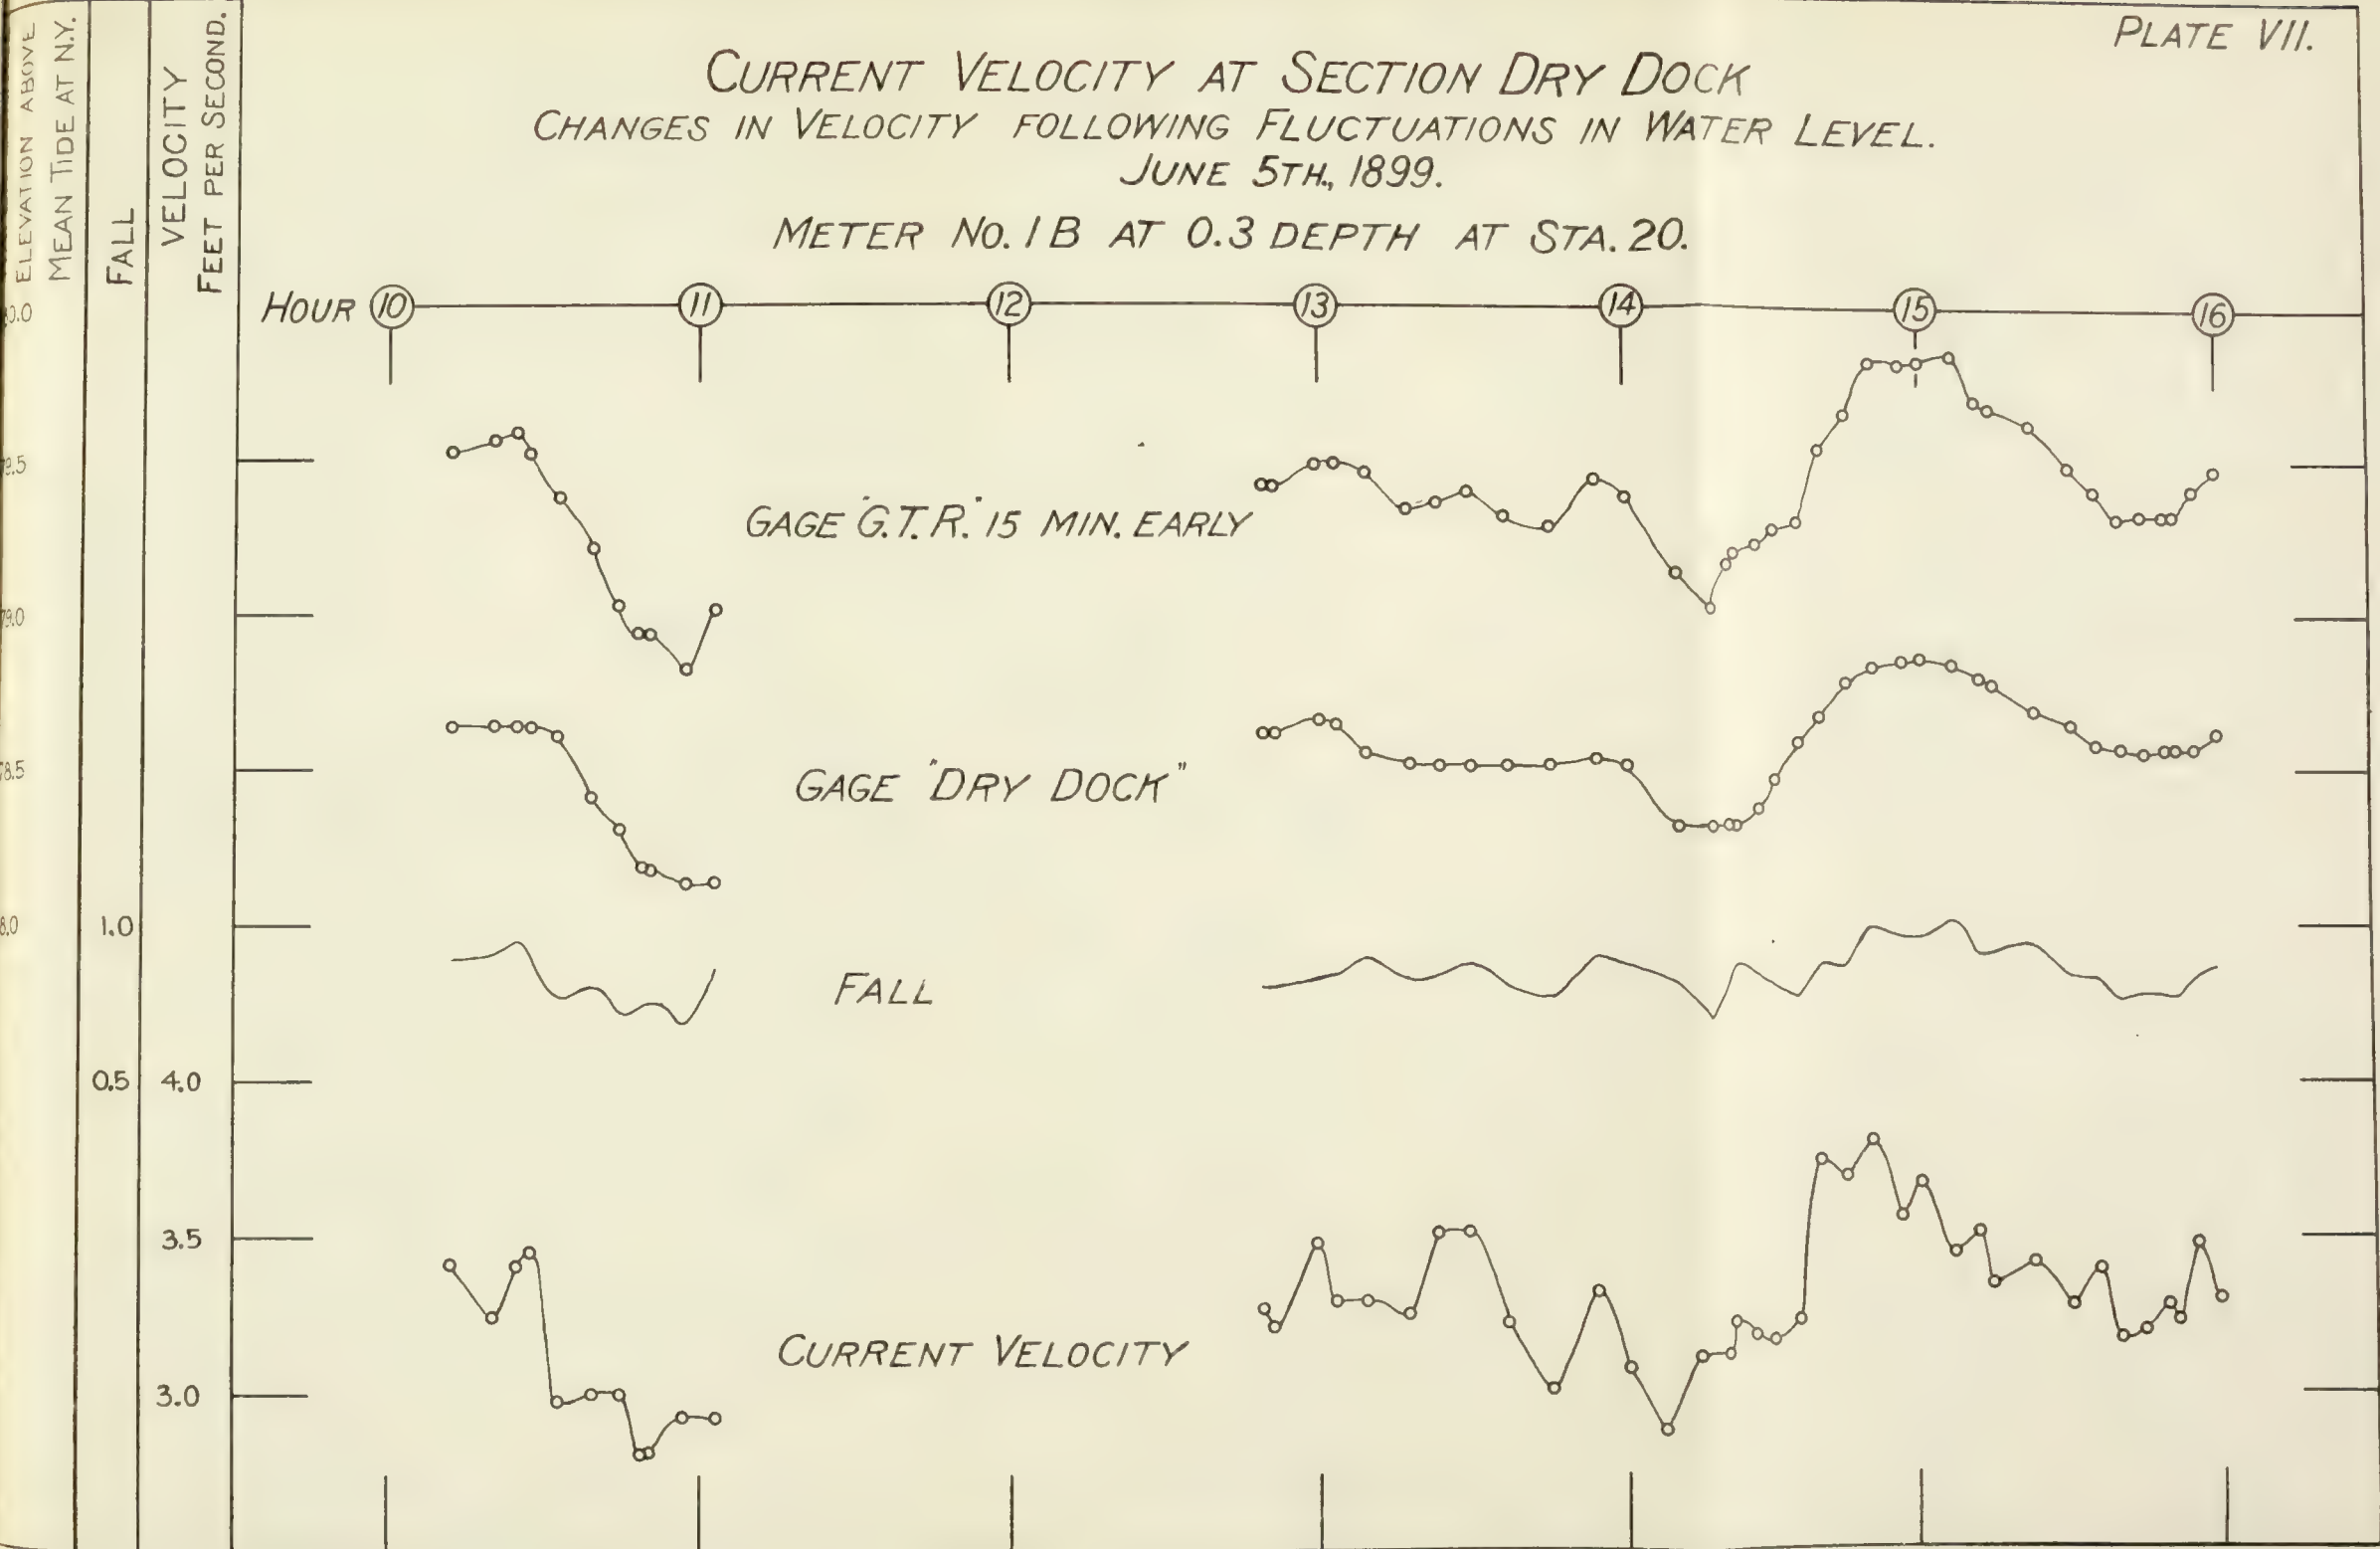 PLATE VII.
CURRENT VELOCITY AT SECTION DRY DOCK
CHANGES IN VELOCITY FOLLOWING FLUCTUATIONS IN WATER LEVEL.
JUNE 5TH., 1899.
METER NO. 1B AT 0.3 DEPTH AT STA. 20.
ELEVATION ABOVE
MEAN TIDE AT N.Y.
FALL
VELOCITY
FEET PER SECOND.
HOUR 10 11 12 13 14 15 16
GAGE "G.T.R." 15 MIN. EARLY
GAGE "DRY DOCK"
1.0
FALL
0.5 4.0
3.5
CURRENT VELOCITY
3.0